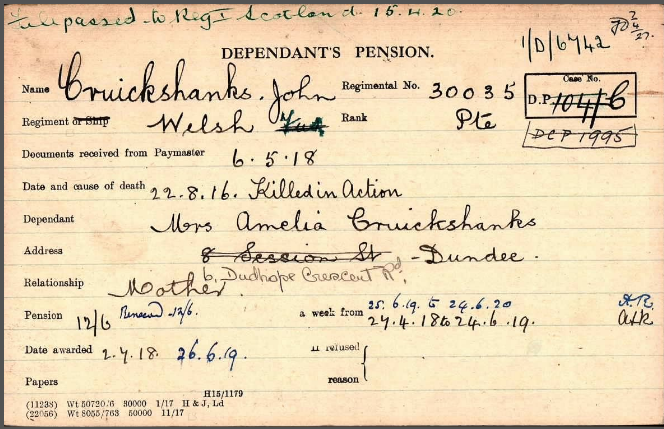 File passed to Regt Scotland. 15.4.20.
1/D/6742
DEPENDANT'S PENSION.
Name Cruickshanks. John Regimental No. 30035
Case No.
D.P. 104/C
Regiment or Ship Welsh Rank Pte
DCP 1995
Documents received from Paymaster 6.5.18
Date and cause of death 22.8.16. Killed in Action
Dependant Mrs Amelia Cruickshanks
Address 8 Session St - Dundee.
6, Dudhope Crescent Rd,
Relationship Mother.
Pension 12/6 Renewed 12/6. a week from 25.6.19. to 24.6.20
27.4.18 to 24.6.19.
Date awarded 2.7.18. 26.6.19. If refused
reason
Papers
H15/1179
(11238) Wt 50720/6 30000 1/17 H & J, Ld
(22056) Wt 8055/763 50000 11/17